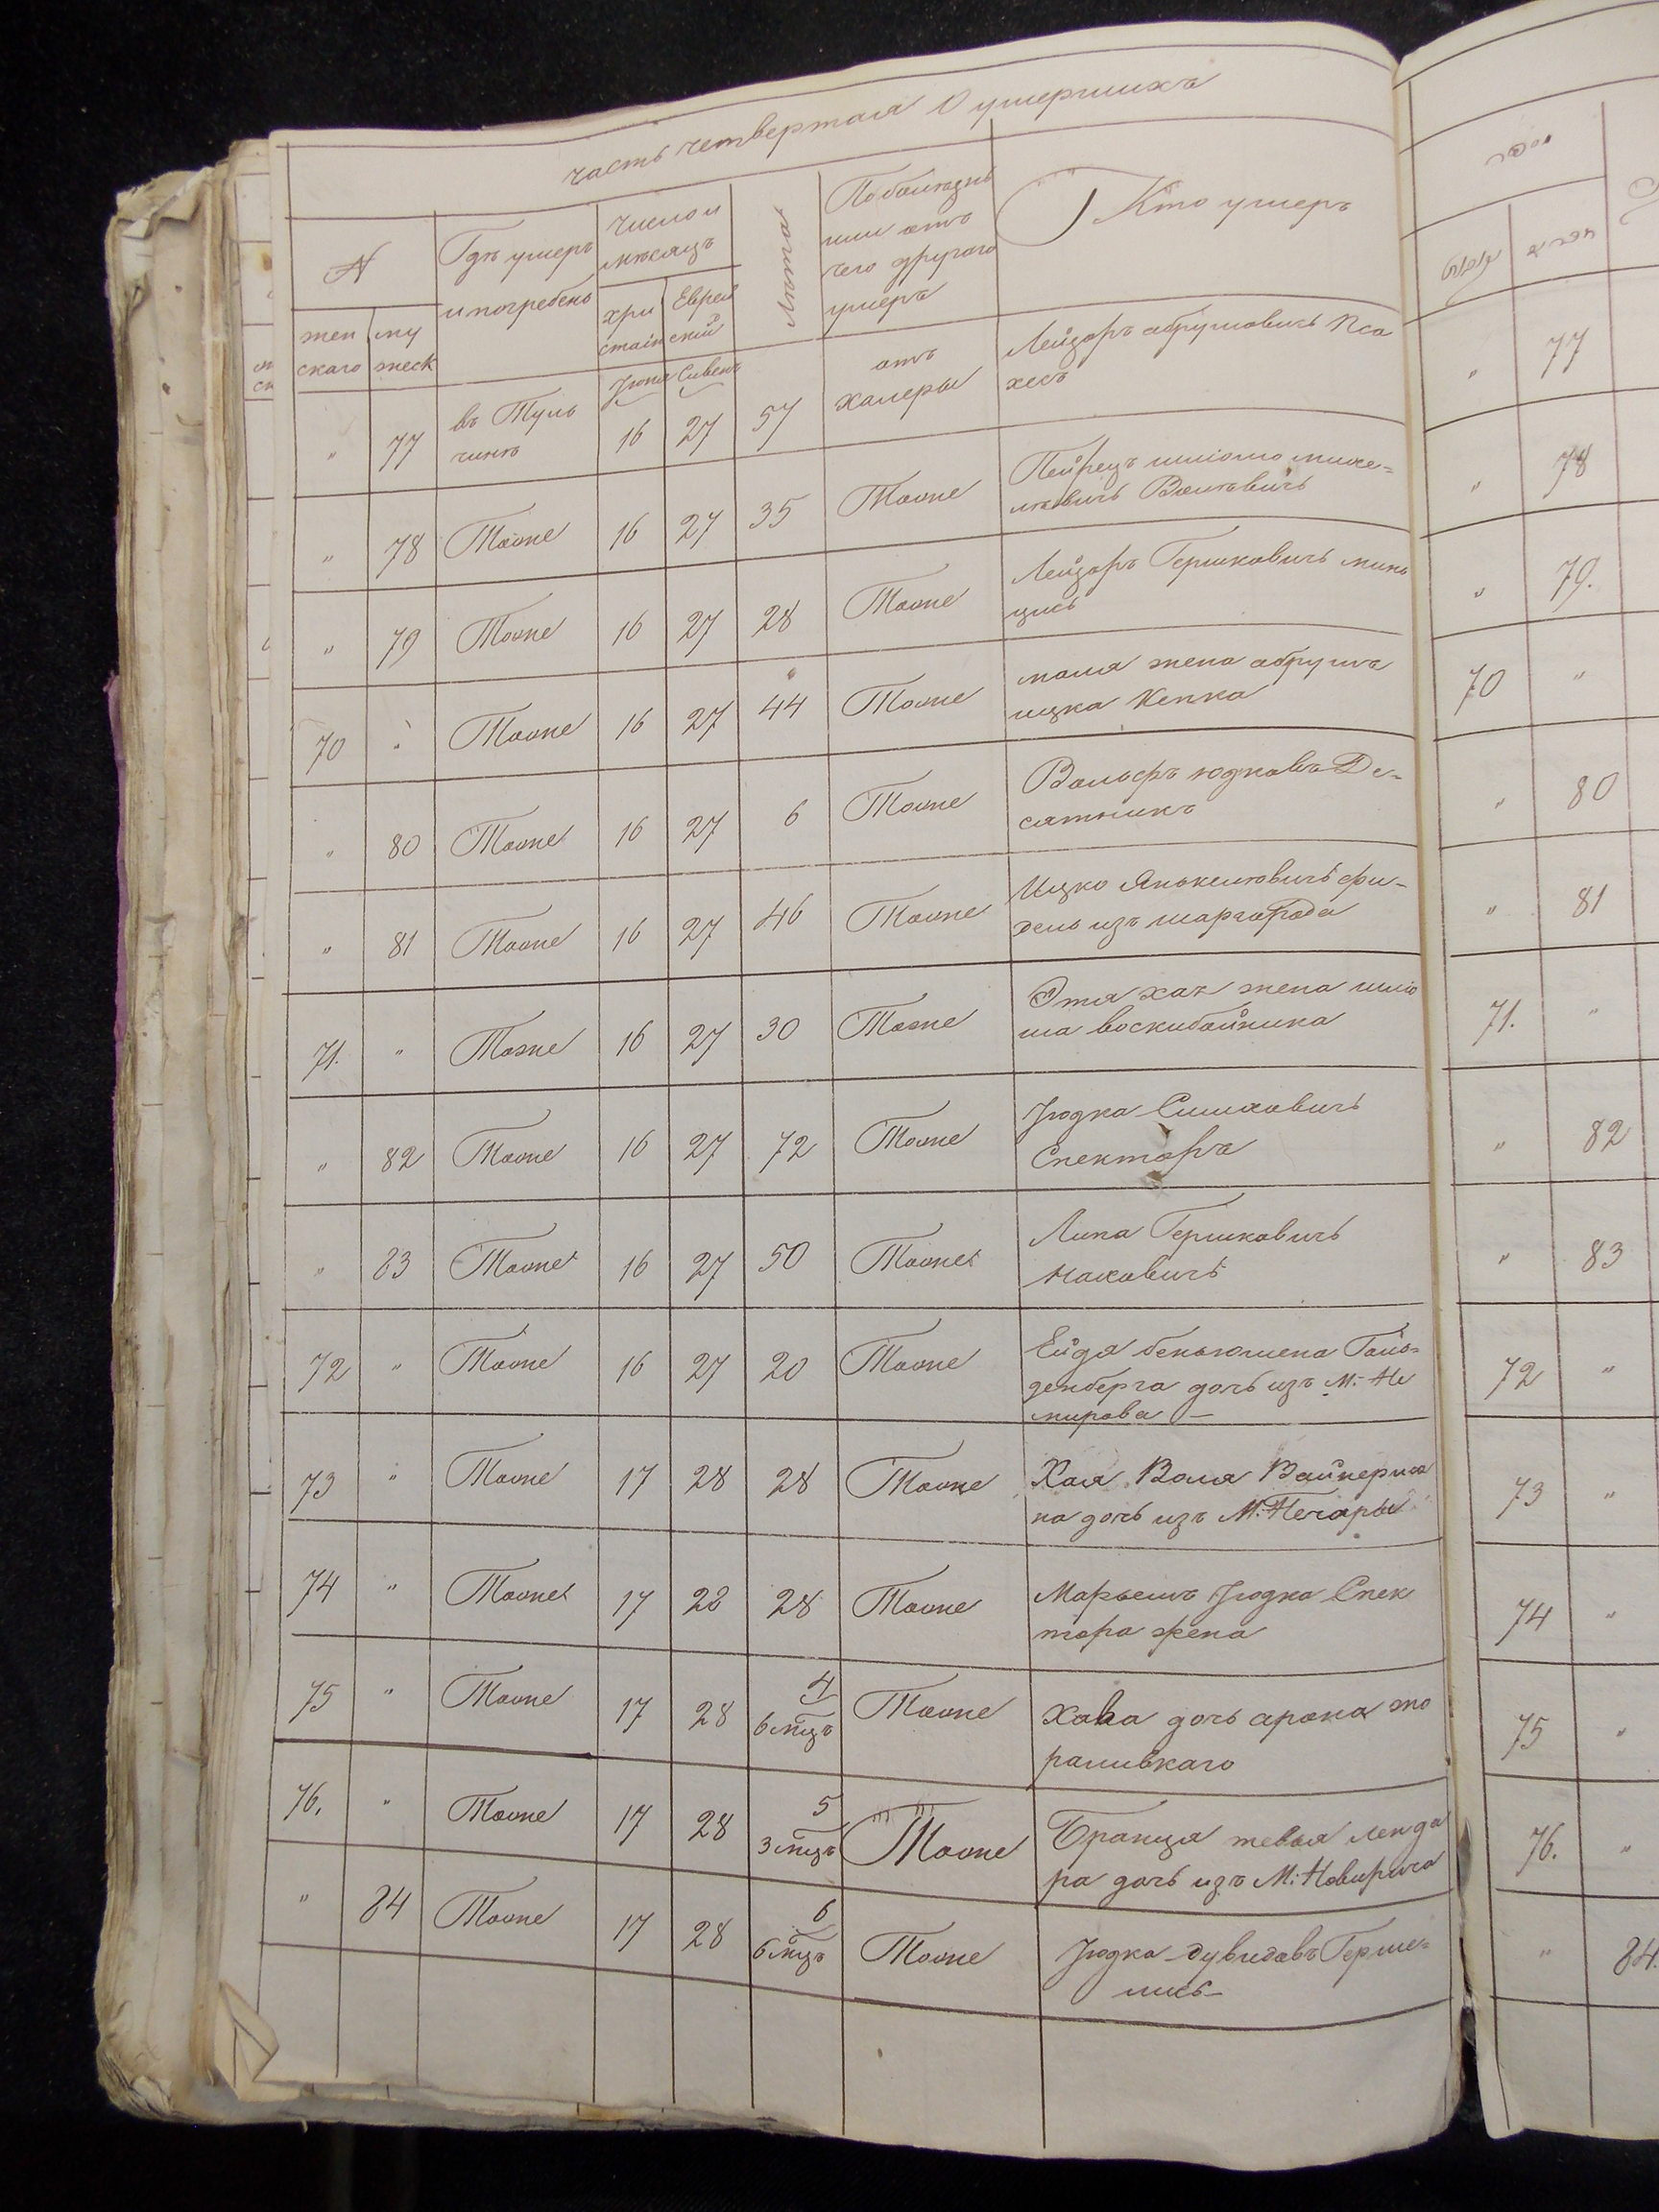 часть четвертая О умершихъ
№
Гдѣ умеръ
и погребенъ
число и
мѣсяцъ
лѣта
По болѣзнѣ
или отъ
чего другаго
умеръ
Кто умеръ
жен
скаго
му
жеск
хри
стаін
Еврей
скій
Іюня Сивенъ
" 77 въ Туль
чинѣ 16 27 57 отъ
халеры Лейзоръ абрумовичъ Пса
хесъ
" 78 Тоже 16 27 35 Тоже Пейрецъ шліомо михе=
левичъ
" 79 Тоже 16 27 28 Тоже Лейзоръ Гершковичъ минь
цисъ
70 " Тоже 16 27 44 Тоже маля жена абрумъ
ицка Кепка
" 80 Тоже 16 27 6 Тоже Вольфъ юдковъ Де-
сятникъ
" 81 Тоже 16 27 46 Тоже Ицко Янькелювичъ фи-
хель изъ шаргорода
71. " Тоже 16 27 30 Тоже Этя хая жена шліо
ма воскобойника
" 82 Тоже 16 27 72 Тоже Іюдка Симховичъ
Спекторъ
" 83 Тоже 16 27 50 Тоже Липа Гершковичъ
Наховичъ
72 " Тоже 16 27 20 Тоже Ейдя беньюмена Голь=
денберга дочь изъ М: Не
мирова
73 " Тоже 17 28 28 Тоже Хая Воля Вайнерма
на дочь изъ М: Печары
74 " Тоже 17 28 28 Тоже Марьемъ Іюдка Спек
тора жена
75 " Тоже 17 28 4
6 мцъ Тоже Хава дочь арона
76. " Тоже 17 28 5
3 мцъ Тоже Бранця тевья ленда
ра дочь изъ М:
" 84 Тоже 17 28 6
6 мцъ Тоже Іюдка дувидовъ Герше=
лисъ
" 77
" 78
" 79.
70 "
" 80
" 81
71. "
" 82
" 83
72 "
73 "
74 "
75 "
76. "
" 84.